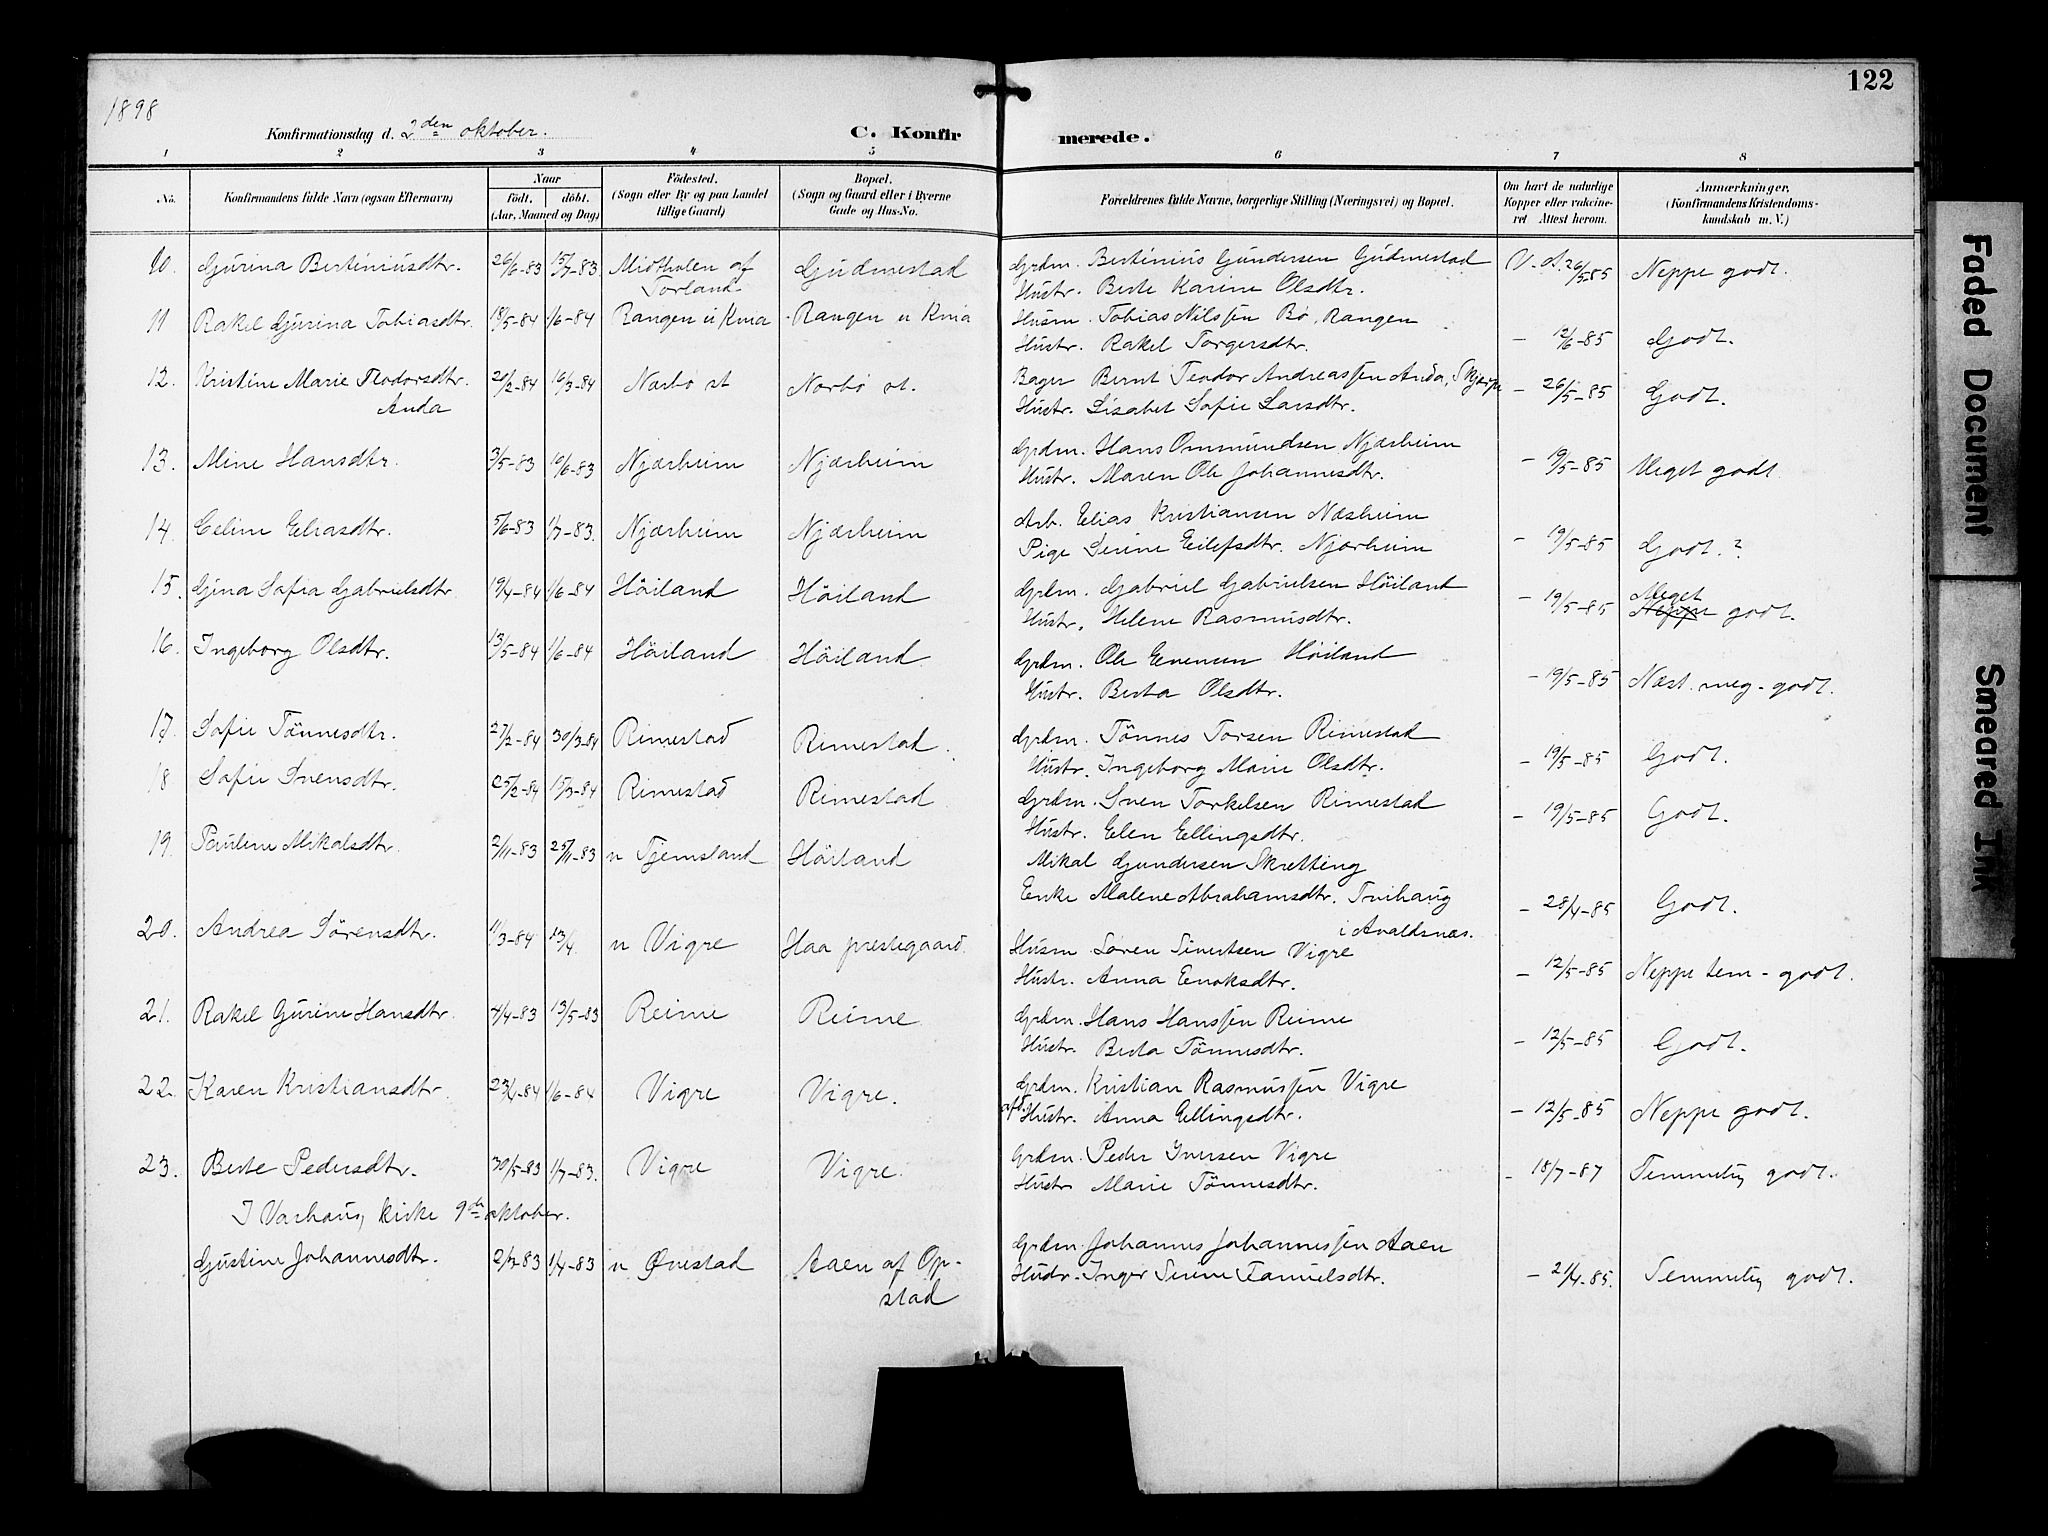 122
1898
Konfirmationsdag d. 2den oktober.
C. Konfirmerede.
1 2 3 4 5 6 7 8
No.
Konfirmandens fulde Navn (ogsaa Efternavn)
Naar
födt. döbt.
(Aar, Maaned og Dag)
Födested.
(Sogn eller By og paa Landet
tillige Gaard)
Bopæl.
(Sogn og Gaard eller i Byerne
Gade og Hus-No.
Forældrenes fulde Navne, borgerlige Stilling (Næringsvei) og Bopæl.
Om havt de naturlige
Kopper eller vakcine-
ret Attest herom.
Anmærkninger.
(Konfirmandens Kristendoms-
kundskab m. V.)
10. Gjurina Bertiniusdtr. 26/6-83 15/7-83 Midtholen af Gudmestad Grdm. Bertinius Gundersen Gudmestad V. A. 26/5 85 Neppe godt.
Torland Hustr. Berte Karine Olsdtr.
11 Rakel Gjurina Tobiasdtr. 18/5-84 1/6-84 Rangen u Kvia Rangen u Kvia Husm. Tobias Nilssen Bø, Rangen
Hustr. Rakel Torgersdtr. - 12/6-85 Godt.
12. Kristine Marie Teodorsdtr. 20/2-84 16/3-84 Nærbø st Nærbø st. Bager Bernt Teodor Andreassen Anda, Skjerpe - 26/5-85 Godt.
Anda Hustr. Lisabet Sofie Larsdtr.
13. Mine Hansdtr. 3/5-83 10/6-83 Njærheim Njærheim Grdm. Hans Ommundsen Njærheim - 19/5-85 Meget godt
Hustr. Maren Ole Johannesdtr.
14. Celine Eliasdtr. 5/6-83 1/7-83. Njærheim Njærheim Arb. Elias Kristiansen Næsheim
Pige Serine Eilefsdtr. Njærheim - 19/5-85 Godt.?
15. Gjina Sofia Gabrielsdtr 19/4-84 1/6-84 Höiland Höiland Grdm. Gabriel Gabrielsen Höiland - 19/5-85 Meget
Hustr. Helene Rasmusdtr. Neppe godt.
16. Ingeborg Olsdtr. 13/5-84 1/6-84 Höiland Höiland Grdm. Ole Evensen Höiland
Hustr. Berta Olsdtr. - 19/5-85 Næst. meg- godt.
17. Sofie Tönnesdtr. 27/2-84 30/3-84 Rimestad Rimestad. Grdm. Tönnes Torsen Rimestad
Hustr. Ingeborg Marie Olsdtr. - 19/5-85 Godt.
18 Sofie Svensdtr. 25/2-84 15/3-84 Rimestad Rimestad Grdm. Sven Torkelsen Rimestad
Hustr. Elen Ellingsdtr. - 19/5-85 Godt.
19. Pauline Mikalsdtr. 2/11-83 25/11-83 n Tjemsland Höiland Mikal Gundersen Skretting
Enke Malene Abrahamsdtr. - 28/4-85 Godt.
i Avaldsnæs.
20. Andrea Sörensdtr. 11/3-84 13/4. n Vigre Haa prestegaard. Husm. Sören Sivertsen Vigre
Hustr. Anna Enoksdtr. - 12/5-85 Neppe tem- godt.
21. Rakel Gurine Hansdtr. 4/4-83 13/5-83 Reime Reime Grdm. Hans Hanssen Reime
Hustr. Berta Tönnesdtr. - 12/5-85 Godt.
22. Karen Kristiansdtr. 23/4-84 1/6-84 Vigre Vigre. Grdm. Kristian Rasmussen Vigre
Hustr. Anna Ellingsdtr. - 12/5-85 Neppe godt.
23. Berte Pedersdtr. 30/5-83 1/7-83. Vigre Vigre. Grdm. Peder Iversen Vigre
Hustr Marie Tönnesdtr. - 18/7-87 Temmelig godt.
I Varhaug kirke 9de oktober.
Gjustine Johannesdtr. 1/4-83 n Ørestad Aaen af Op- Grdm. Johannes Johannessen Aaen
stad Hustr. Inger Serine Samuelsdtr. - 21/4-85. Temmelig godt.
Faded Document
Smeared Ink